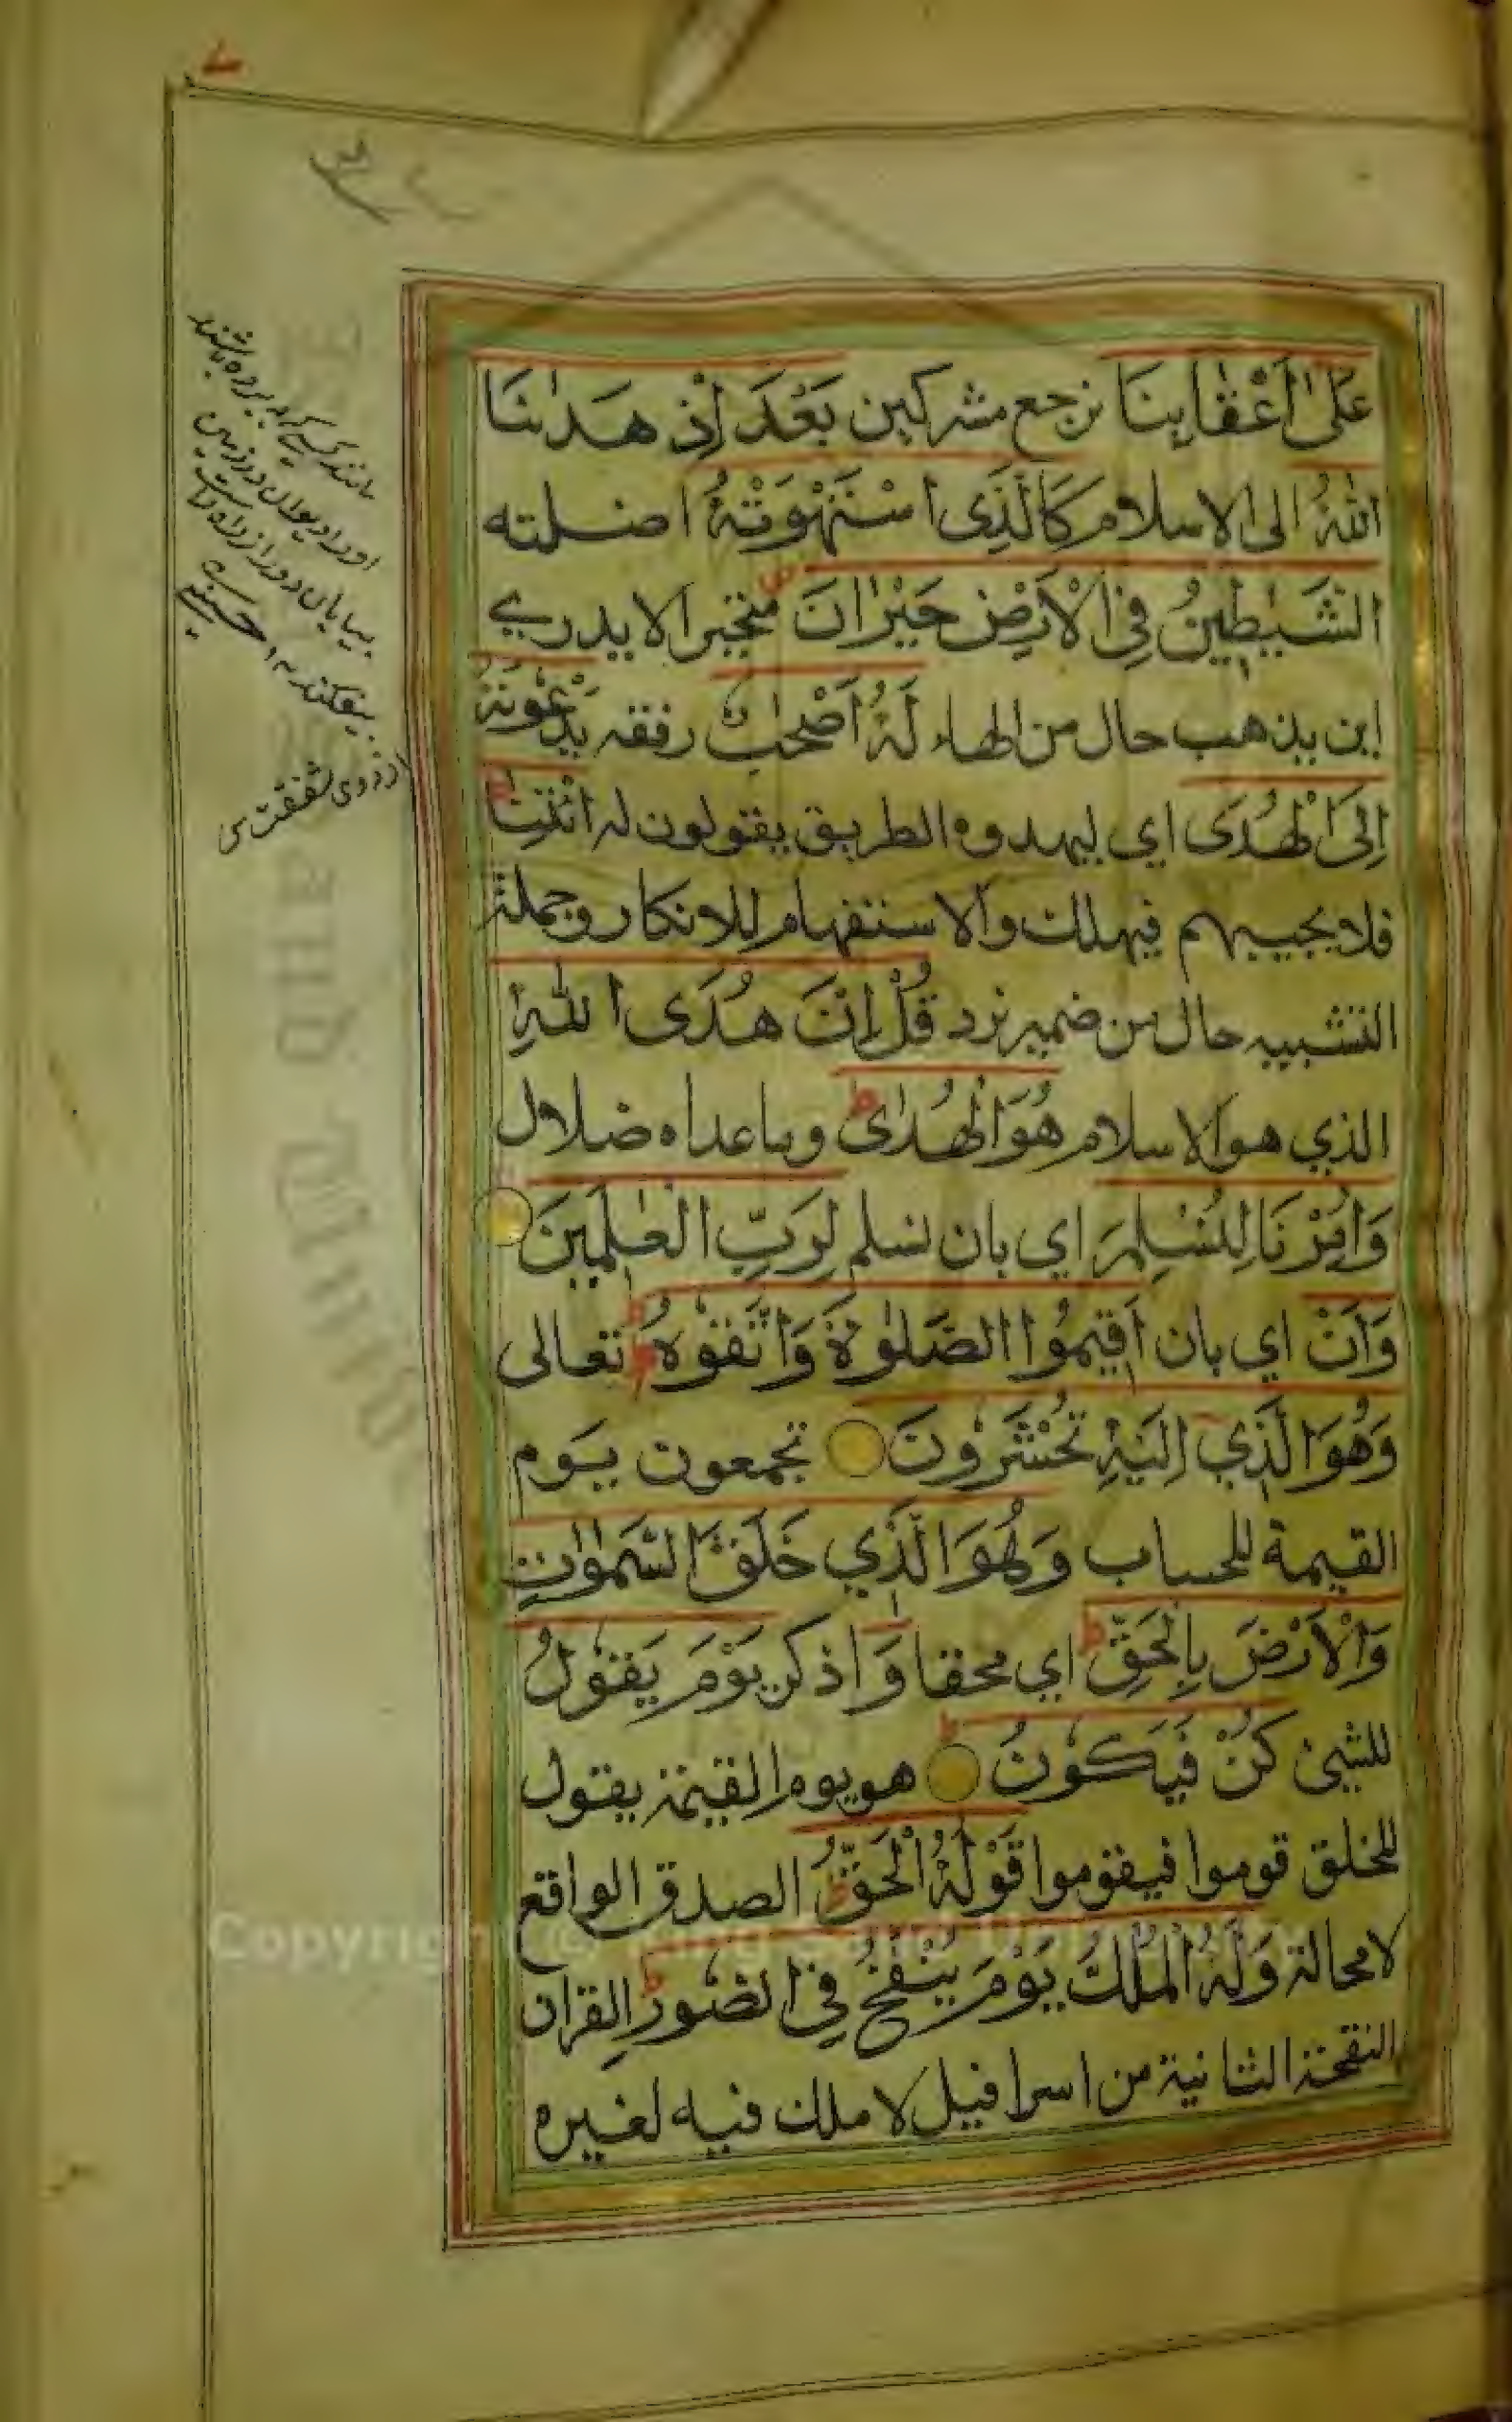 عَلٰى اَعْقَابِنَا نرجع مشركين بَعْدَ اِذْ هَدٰنَا
اللّٰهُ الى الاسلام كَالَّذِى اسْتَهْوَتْهُ اضلته
الشَّيٰطِيْنُ فِى الْاَرْضِ حَيْرَانَ متحيرا لا يدري
اين يذهب حال من الهاء لَهُ اَصْحٰبٌ رفقه يَدْعُوْنَهُ
اِلَى الْهُدَى اي ليهدوه الطريق يقولون له ائْتِنَا
فلا يجيبهم فيهلك والاستفهام للانكار وجملة
التشبيه حال من ضمير نرد قُلْ اِنَّ هُدَى اللّٰهِ
الذي هو الاسلام هُوَ الْهُدٰى وماعداه ضلال
وَاُمِرْنَا لِنُسْلِمَ اي بان نسلم لِرَبِّ الْعٰلَمِيْنَ
وَاَنْ اي بان اَقِيْمُوا الصَّلٰوةَ وَاتَّقُوْهُ تعالى
وَهُوَ الَّذِي اِلَيْهِ تُحْشَرُوْنَ تجمعون يوم
القيمة للحساب وَهُوَ الَّذِي خَلَقَ السَّمٰوٰتِ
وَالْاَرْضَ بِالْحَقِّ اي محقا وَ اذكر يَوْمَ يَقُوْلُ
للشيئ كُنْ فَيَكُوْنُ هو يوم القيمة يقول
للخلق قوموا فيقوموا قَوْلُهُ الْحَقُّ الصدق الواقع
لا محالة وَلَهُ الْمُلْكُ يَوْمَ يُنْفَخُ فِى الصُّوْرِ القران
النفخة الثانية من اسرافيل لا ملك فيه لغيره
مانند كسے كه برده باشند
او را ديوان در زمين
بيابان دور از راه راست
بيفكنند ۱۲ حسينے
از روى شفقت
Copyright © King Saud University